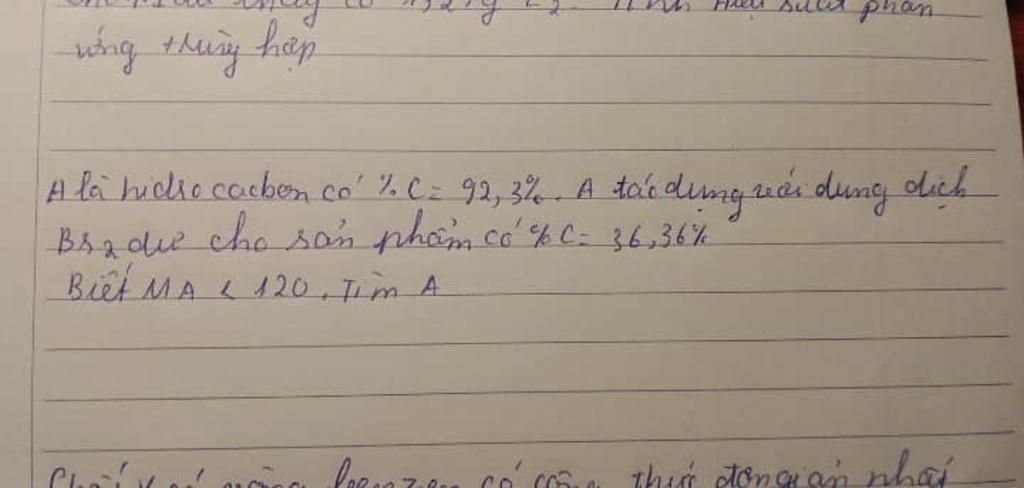 ứng trùng hợp
A là hidrocacbon có % C = 92,3%. A tác dụng với dung dịch
Br2 dư cho sản phẩm có % C = 36,36%
Biết MA < 120. Tìm A
có công thức đơn giản nhất